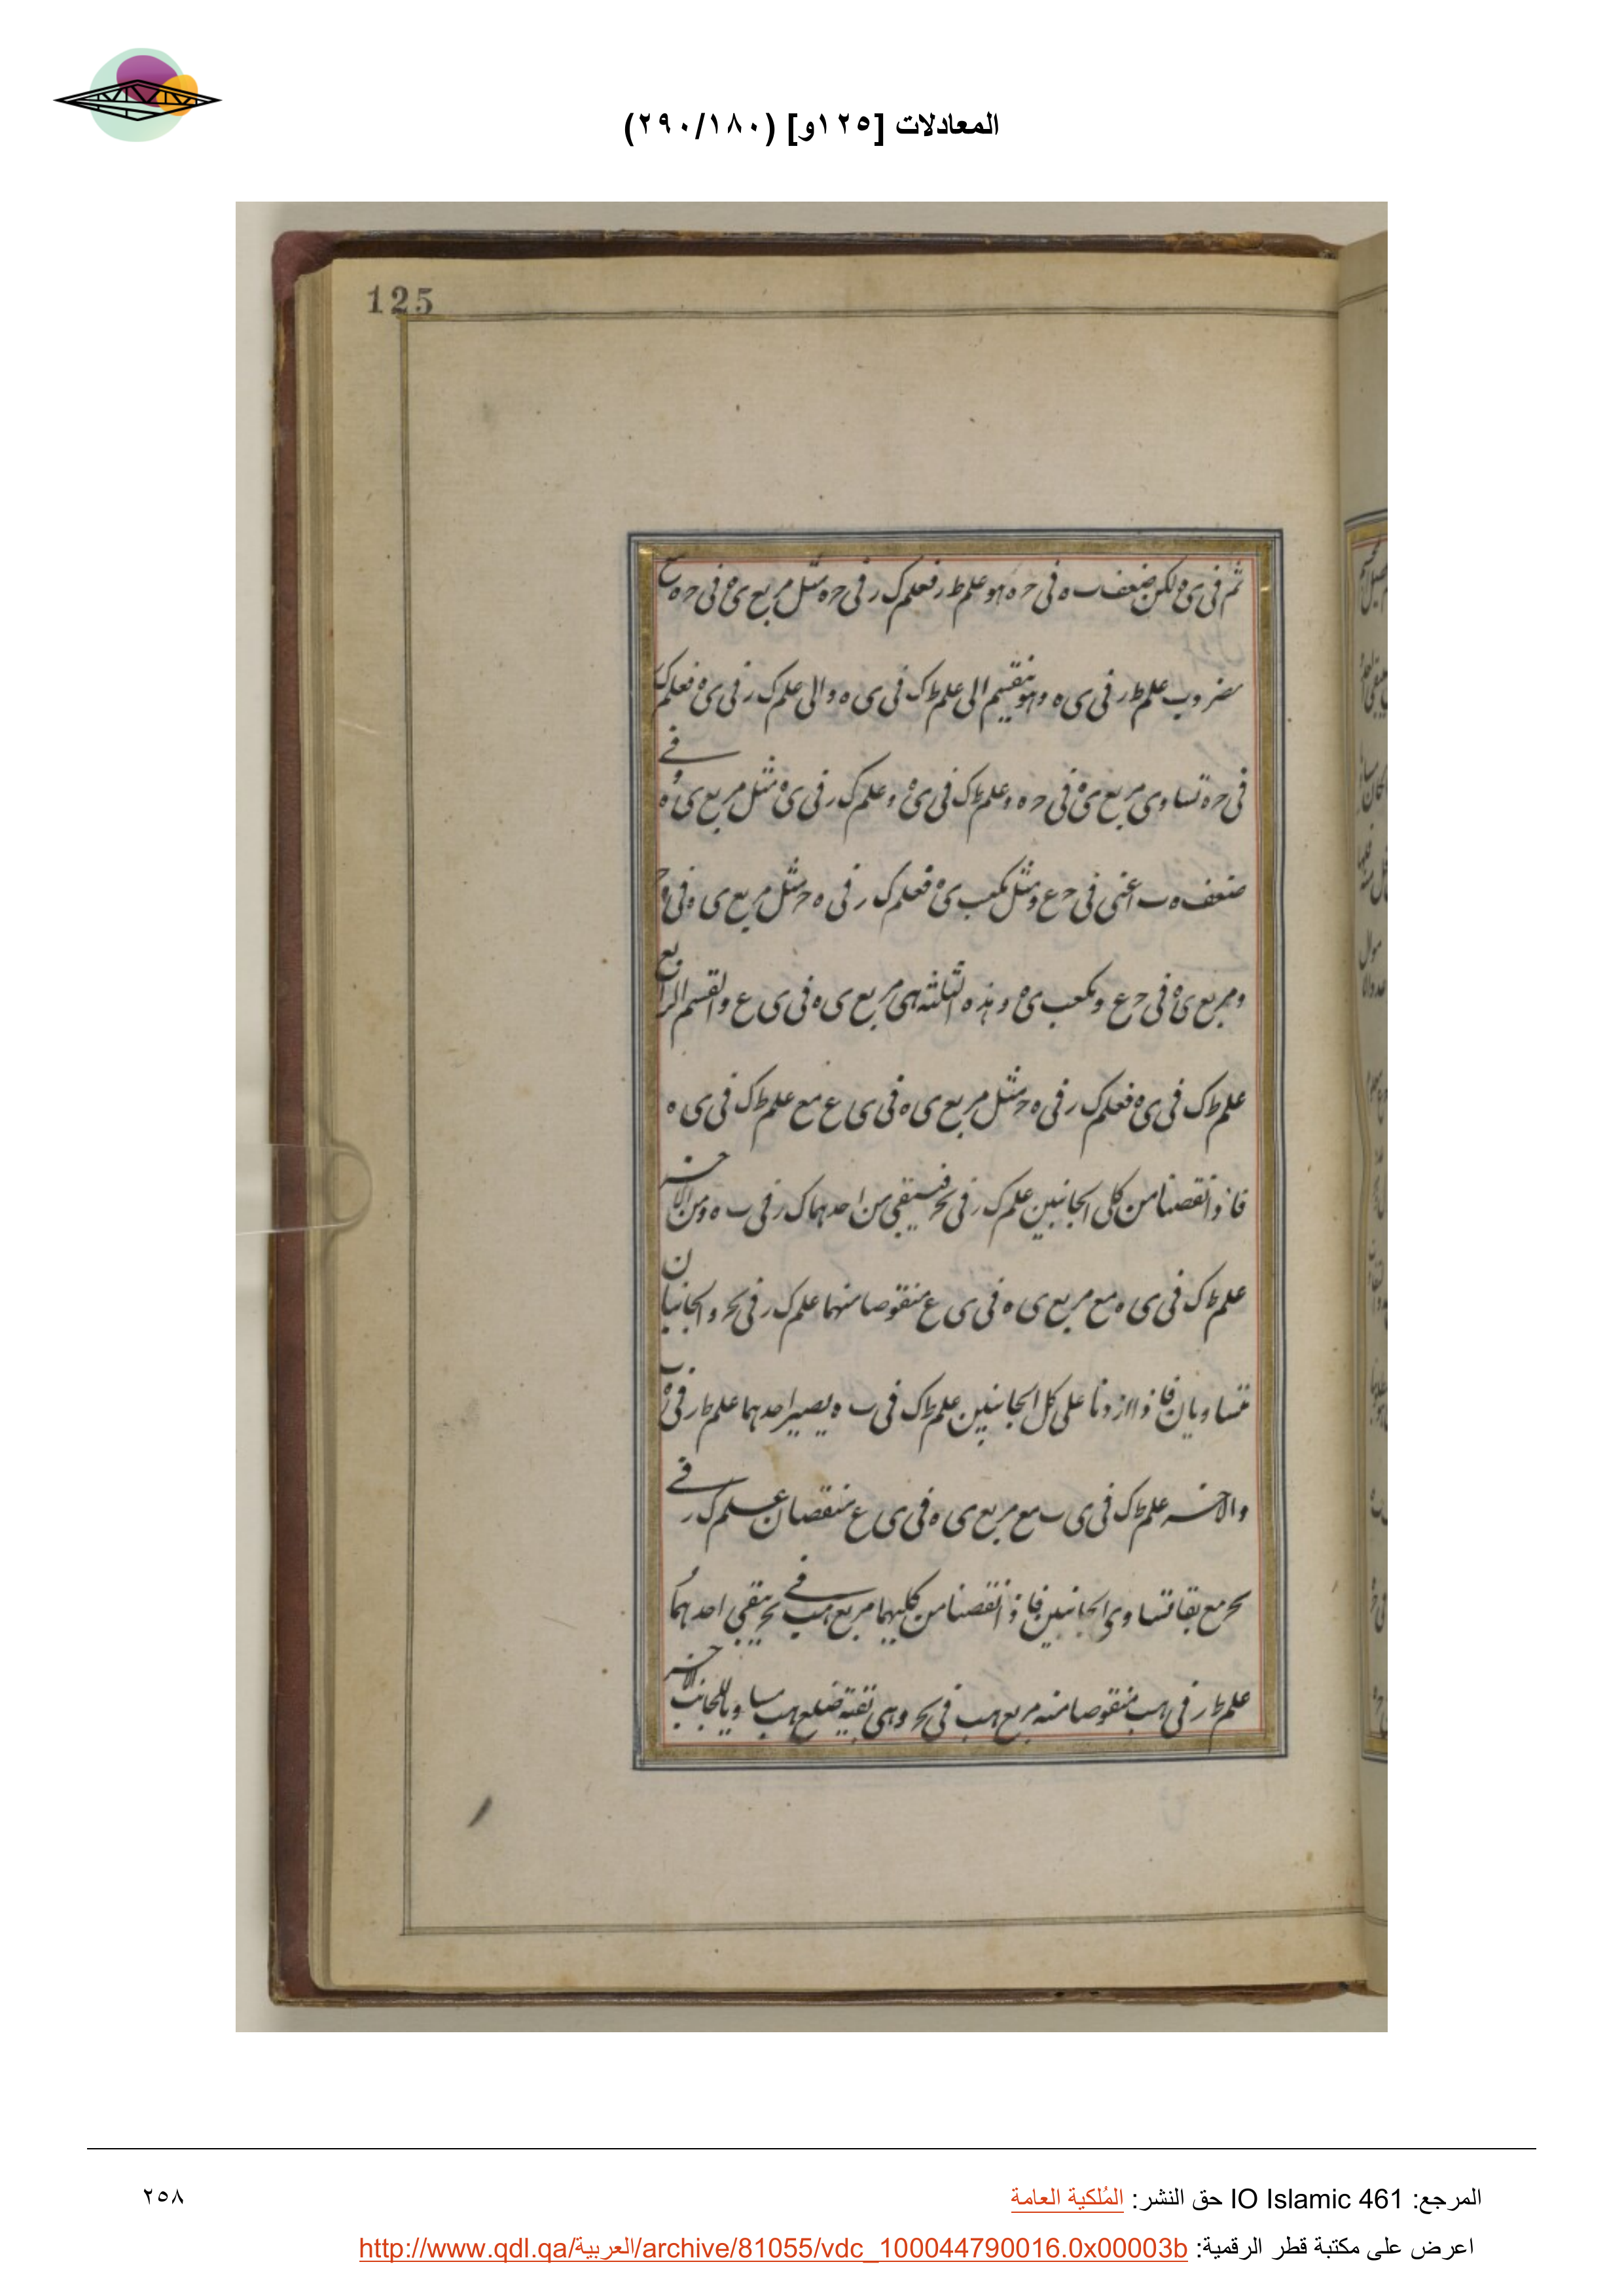 المعادلات [١٢٥و] (٢٩٠/١٨٠)
125
ثم فى ى ه لكن ضعف ب ه فى ح ه هو علم ط ر فعلم ك ر فى ح ه مثل مربع ى ه فى ح ه مع
مضروب علم ط ر فى ى ه وهو ينقسم الى علم ط ك فى ى ه والى علم ك ر فى ى ه فعلم ك ر
فى ح ه تساوى مربع ى ه فى ح ه وعلم ط ك فى ى ه وعلم ك ر فى ى ه مثل مربع ى ه فى
ضعف ه ب اعنى فى ح ع ومثل مكعب ى ه فعلم ك ر فى ه ح مثل مربع ى ه فى ه ح
ومربع ى ه فى ح ع ومكعب ى ه وهذه الثلثة هى مربع ى ه فى ى ع والقسم الرابع
علم ط ك فى ى ه فعلم ك ر فى ه ح مثل مربع ى ه فى ى ع مع علم ط ك فى ى ه
فاذ انقصنا من كلى الجانبين علم ك ر فى بح فيبقى من احدهما ك ر فى ب ه ومن الاخر
علم ط ك فى ى ه مع مربع ى ه فى ى ع منقوصا منهما علم ك ر فى بح والجانبان
متساويان فاذا ازدنا على كل الجانبين علم ط ك فى ب ه يصير احدهما علم ط ر فى ه ب
والاخر علم ط ك فى ى ب مع مربع ى ه فى ى ع منقصان علم ك ر فى
بح مع بقا تساوى الجانبين فاذ انقصنا من كليهما مربع هب فى بح يبقى احدهما
علم ط ر فى هب منقوصا منه مربع هب فى بح وهى تقية ضلع هب مساويا للجانب الاخر
المرجع: IO Islamic 461 حق النشر: المُلكية العامة
٢٥٨
اعرض على مكتبة قطر الرقمية: http://www.qdl.qa/العربية/archive/81055/vdc_100044790016.0x00003b